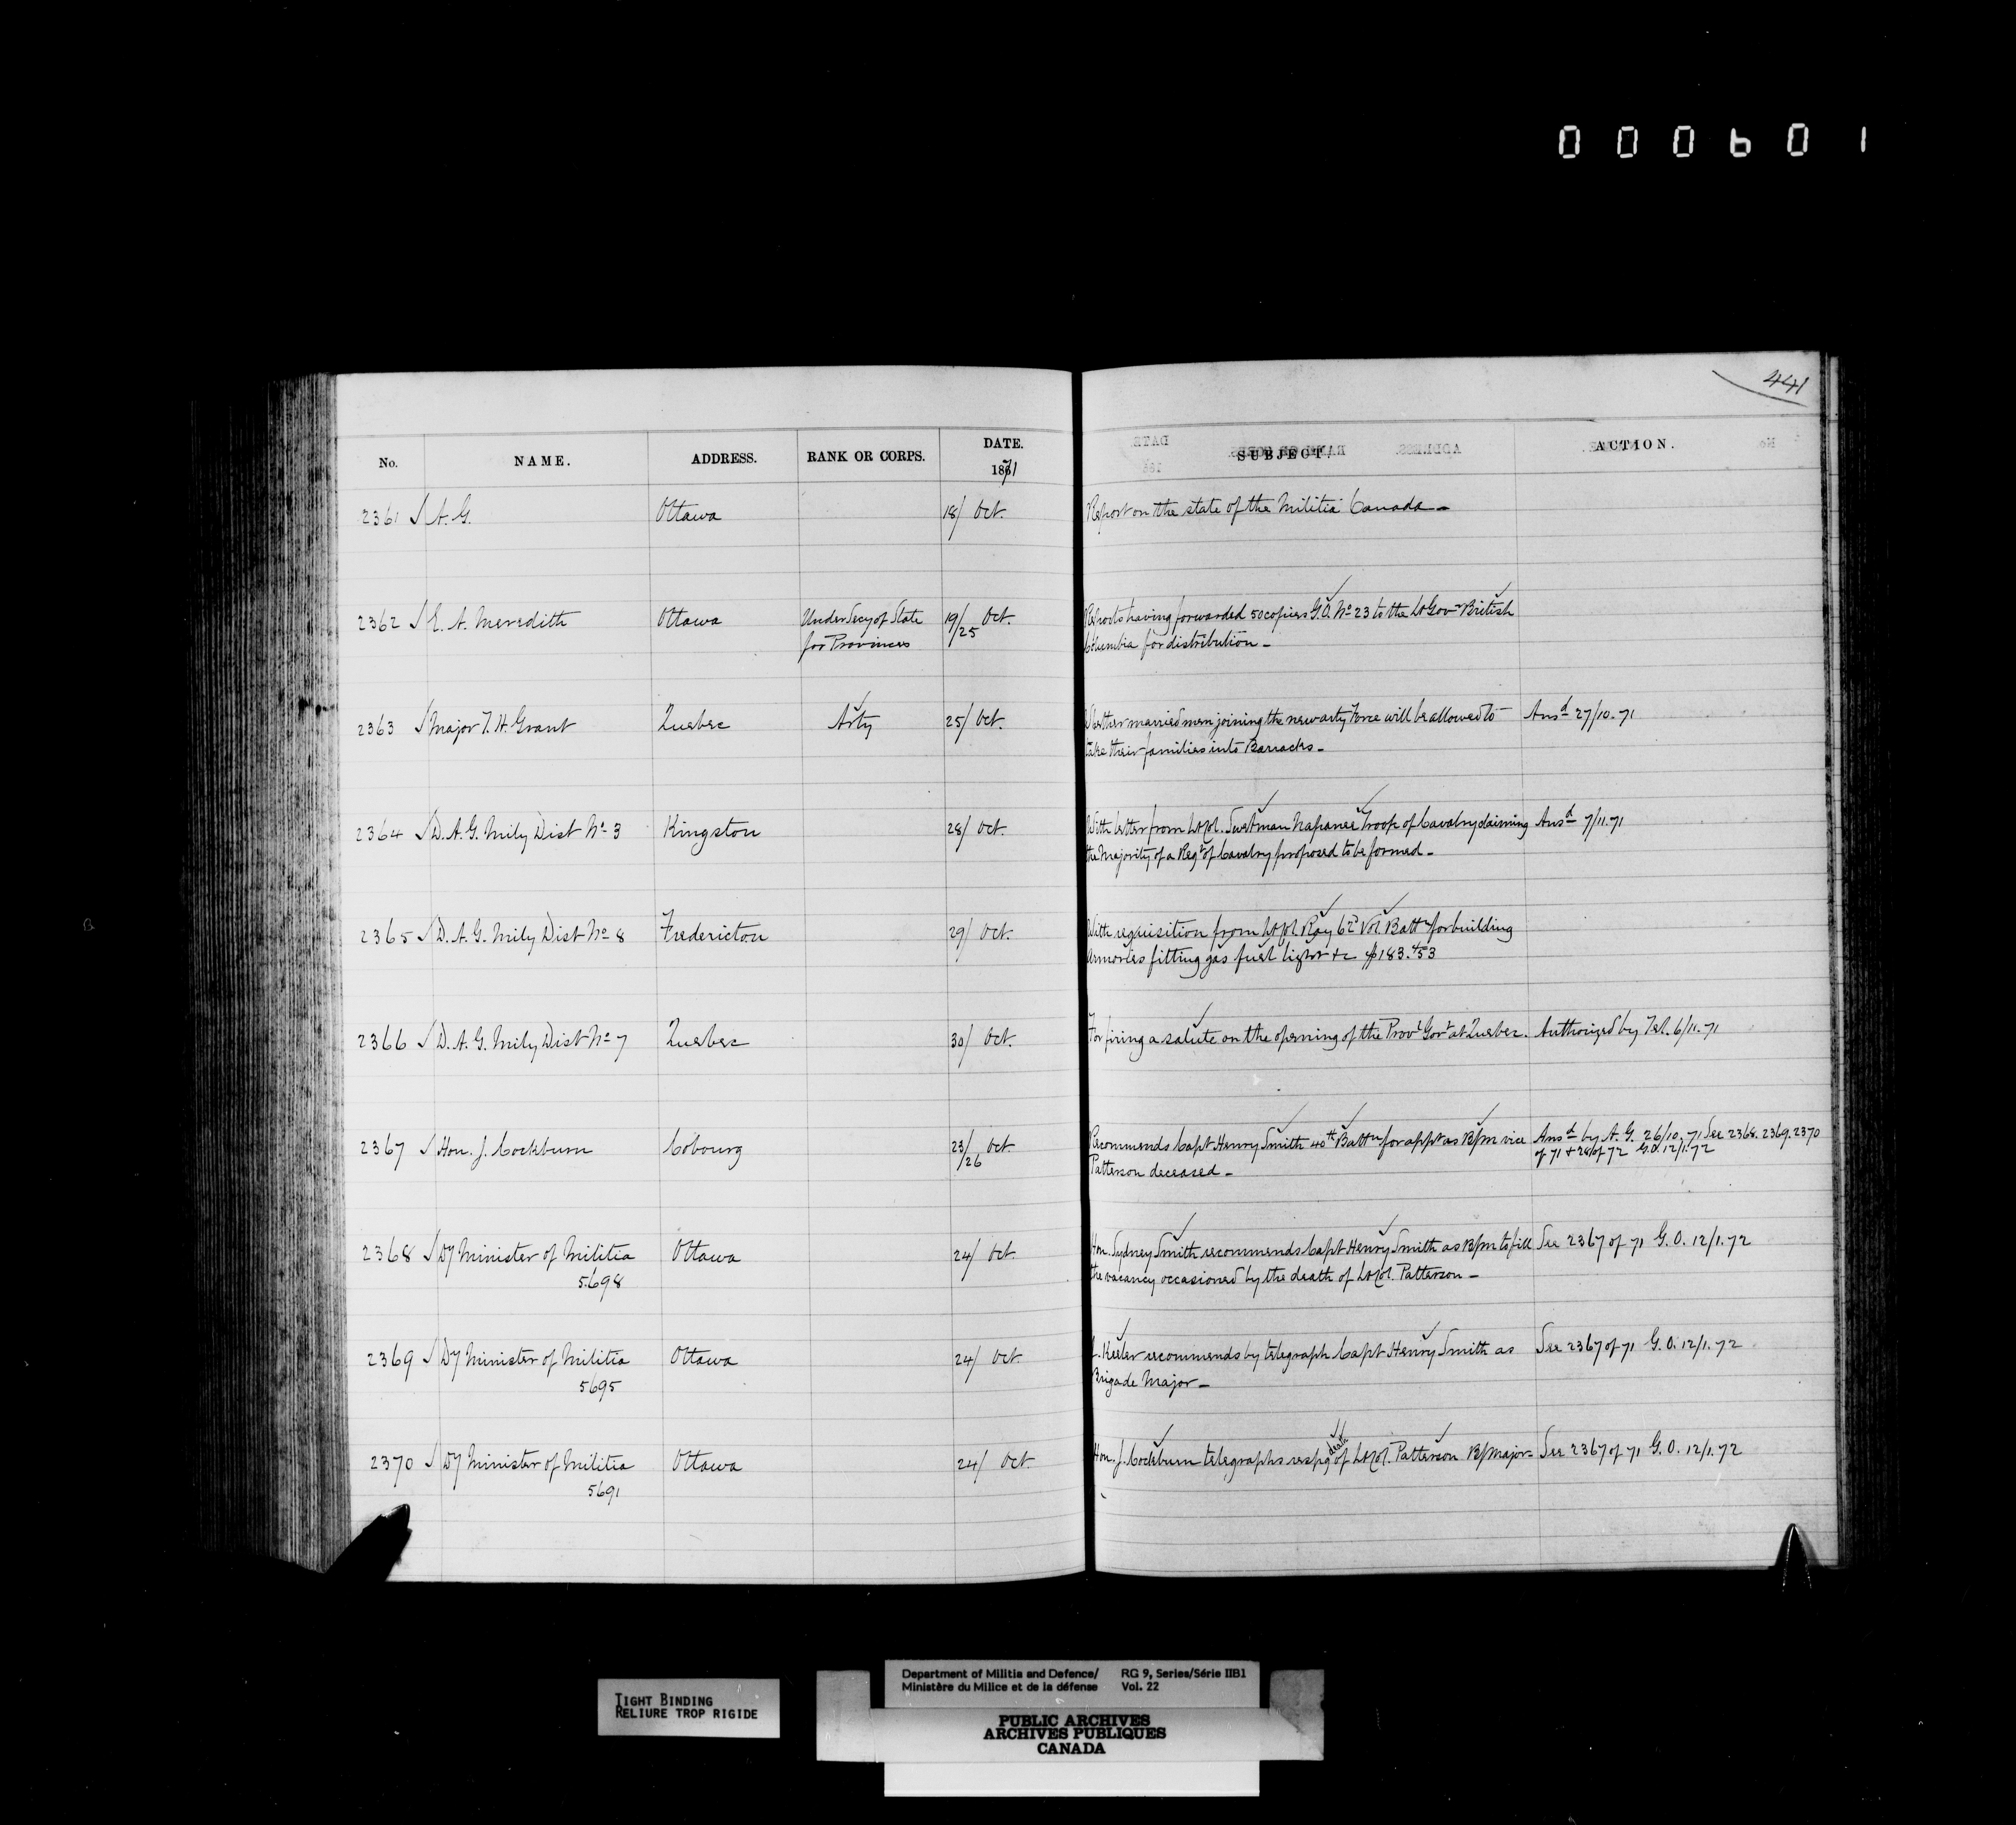 000601
441
No. NAME. ADDRESS. RANK OR CORPS. DATE. 1871 SUBJECT. ACTION.
2361 √ A. G. Ottawa 18/ Oct. Report on the state of the Militia Canada —
2362 √ E. A. Meredith Ottawa Under Secy of State 19/25 Oct. Reports having forwarded 50 copies G.O. No 23 to the Lt Govr British
for Provinces Columbia for distribution —
2363 √ Major T. H. Grant Quebec Arty 25/ Oct. Whether married men joining the new arty Force will be allowed to Ansd 27/10.71
take their families into Barracks —
2364 √ D. A. G. Mily Dist No 3 Kingston 28/ Oct. With letter from Lt Col. Sweetman Napanee Troop of Cavalry claiming Ansd 7/11.71
the Majority of a Regt of Cavalry proposed to be formed —
2365 √ D. A. G. Mily Dist No 8 Fredericton 29/ Oct. With requisition from Lt Col. Ray 62d Vol. Battn for building
Armories fitting gas fuel light &c $183.53
2366 √ D. A. G. Mily Dist No 7 Quebec 30/ Oct. For firing a salute on the opening of the Provl Govt at Quebec. Authorized by Tel. 6/11.71
2367 √ Hon. J. Cockburn Cobourg 23/26 Oct. Recommends Capt Henry Smith 40th Battn for appt as B/M vice Ansd by A. G. 26/10.71 See 2368. 2369. 2370
Patterson deceased — of 71 & 28 of 72 G.O. 12/1.72
2368 √ Dy Minister of Militia Ottawa 24/ Oct. Hon. Sydney Smith recommends Capt Henry Smith as B/M to fill See 2367 of 71 G. O. 12/1.72
5698 the vacancy occasioned by the death of Lt Col. Patterson —
2369 √ Dy Minister of Militia Ottawa 24/ Oct. J. Keeler recommends by telegraph Capt Henry Smith as See 2367 of 71 G. O. 12/1.72
5695 Brigade Major —
2370 √ Dy Minister of Militia Ottawa 24/ Oct. Hon. J. Cockburn telegraphs respg death of Lt Col. Patterson B/Major — See 2367 of 71 G. O. 12/1.72
5691
TIGHT BINDING
RELIURE TROP RIGIDE
Department of Militia and Defence/ RG 9, Series/Série IIB1
Ministère du Milice et de la défense Vol. 22
PUBLIC ARCHIVES
ARCHIVES PUBLIQUES
CANADA